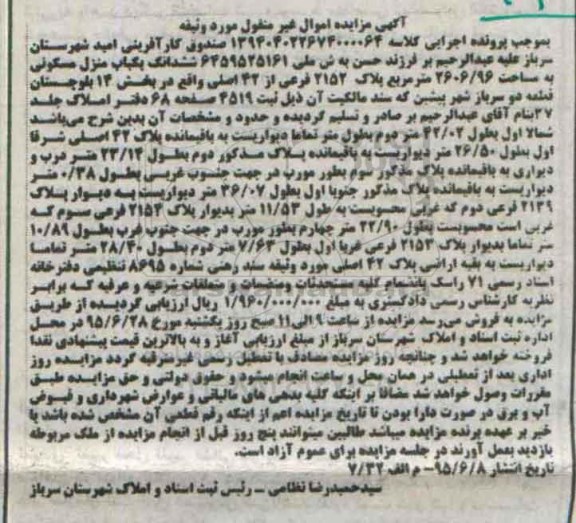 آگهی مزایده اموال غیر منقول مورد وثیقه
بموجب پرونده اجرایی کلاسه ۱۳۹۴۰۴۰۲۲۶۷۴۰۰۰۰۶۴ صندوق کارآفرینی امید شهرستان
سرباز علیه عبدالرحیم بر فرزند حسن به ش ملی ۶۴۵۹۵۲۵۱۶۱ ششدانگ یکباب منزل مسکونی
به مساحت ۲۶۰۶/۹۶ مترمربع پلاک ۲۱۵۲ فرعی از ۴۲ اصلی واقع در بخش ۱۴ بلوچستان
قطعه دو سرباز شهر پیشین که سند مالکیت آن ذیل ثبت ۴۵۱۹ صفحه ۶۸ دفتر املاک جلد
۲۷بنام آقای عبدالرحیم بر صادر و تسلیم گردیده و حدود و مشخصات آن بدین شرح می‌باشد
شمالا اول بطول ۴۲/۰۲ متر دوم بطول متر تماما دیواریست به باقیمانده پلاک ۴۲ اصلی شرقا
اول بطول ۲۶/۵۰ متر دیواریست به باقیمانده پلاک مذکور دوم بطول ۲۳/۱۳ متر درب و
دیواری به باقیمانده پلاک مذکور سوم بطور مورب در جهت جنوب غربی بطول ۰/۳۸ متر
دیواریست به باقیمانده پلاک مذکور جنوبا اول بطول ۳۶/۰۷ متر دیواریست به دیوار پلاک
۲۱۳۹ فرعی دوم که غربی محسوبست به طول ۱۱/۵۳ متر بدیوار پلاک ۲۱۵۳ فرعی سوم که
غربی است محسوبست بطول ۲۲/۹۰ متر چهارم بطور مورب در جهت جنوب غرب بطول ۱۰/۸۹
متر تماما بدیوار پلاک ۲۱۵۳ فرعی غربا اول بطول ۷/۶۳ متر دوم بطول ۲۸/۴۰ متر تماما
دیواریست به بقیه اراضی پلاک ۴۲ اصلی مورد وثیقه سند رهنی شماره ۸۶۹۵ تنظیمی دفترخانه
اسناد رسمی ۷۱ راسک بانضمام کلیه مستحدثات ومنضمات و متعلقات شرعیه و عرفیه که برابر
نظریه کارشناس رسمی دادگستری به مبلغ ۱/۹۶۰/۰۰۰/۰۰۰ ریال ارزیابی گردیده از طریق
مزایده به فروش می‌رسد مزایده از ساعت ۹ الی۱۱ صبح روز یکشنبه مورخ ۹۵/۶/۲۸ در محل
اداره ثبت اسناد و املاک شهرستان سرباز از مبلغ ارزیابی آغاز و به بالاترین قیمت پیشنهادی نقدا
فروخته خواهد شد و چنانچه روز مزایده مصادف با تعطیل رسمی غیرمترقبه گردد مزایده روز
اداری بعد از تعطیلی در همان محل و ساعت انجام میشود و حقوق دولتی و حق مزایده طبق
مقررات وصول خواهد شد مضافا بر اینکه کلیه بدهی های مالیاتی و عوارض شهرداری و قبوض
آب و برق در صورت دارا بودن تا تاریخ مزایده اعم از اینکه رقم قطعی آن مشخص شده باشد یا
خیر بر عهده برنده مزایده میباشد طالبین میتوانند پنج روز قبل از انجام مزایده از ملک مربوطه
بازدید بعمل آورند در جلسه مزایده برای عموم آزاد است.
تاریخ انتشار ۹۵/۶/۸- م الف ۷/۳۲
سیدحمیدرضا نظامی – رئیس ثبت اسناد و املاک شهرستان سرباز